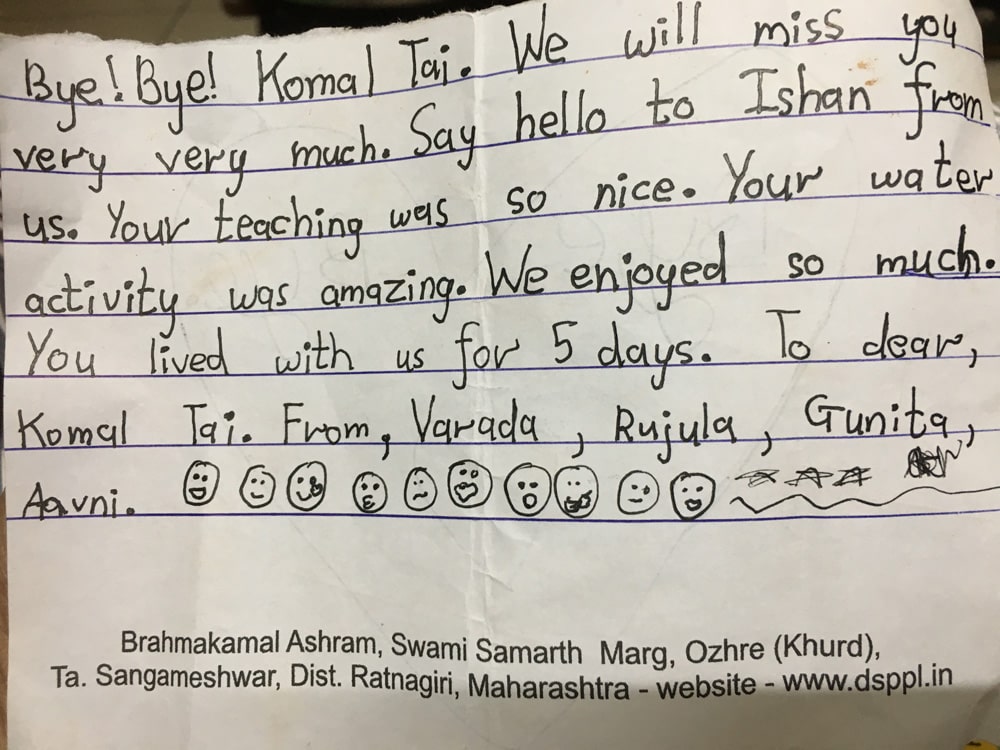 Bye! Bye! Komal Tai. We will miss you
very very much. Say hello to Ishan from
us. Your teaching was so nice. Your water
activity was amazing. We enjoyed so much.
You lived with us for 5 days. To dear,
Komal Tai. From, Varada, Rujula, Gunita,
Aavni.
Brahmakamal Ashram, Swami Samarth Marg, Ozhre (Khurd),
Ta. Sangameshwar, Dist. Ratnagiri, Maharashtra - website - www.dsppl.in